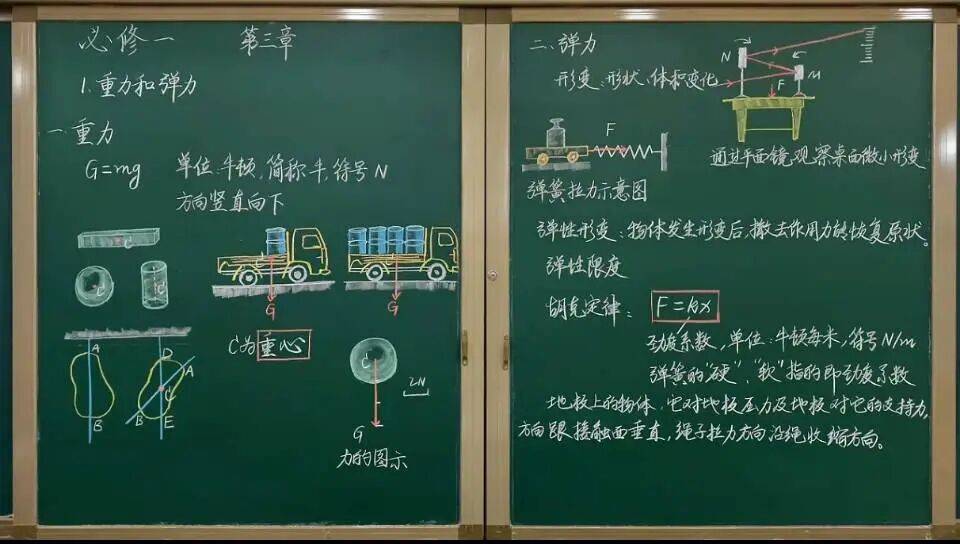 必修一 第三章
1.重力和弹力
一.重力
G=mg 单位:牛顿,简称:牛,符号N
方向竖直向下
C
C
C
C
G
C
G
C为重心
A
B
D
A
C
B
E
C
2N
G
力的图示
二、弹力
形变:形状、体积变化
N
M
F
通过平面镜观察桌面微小形变
F
弹簧拉力示意图
弹性形变:物体发生形变后,撤去作用力能恢复原状。
弹性限度
胡克定律: F=kx
劲度系数,单位:牛顿每米,符号N/m
弹簧的“硬”、“软”指的即劲度系数
地板上的物体,它对地板压力及地板对它的支持力,
方向跟接触面垂直,绳子拉力方向沿绳收缩方向。